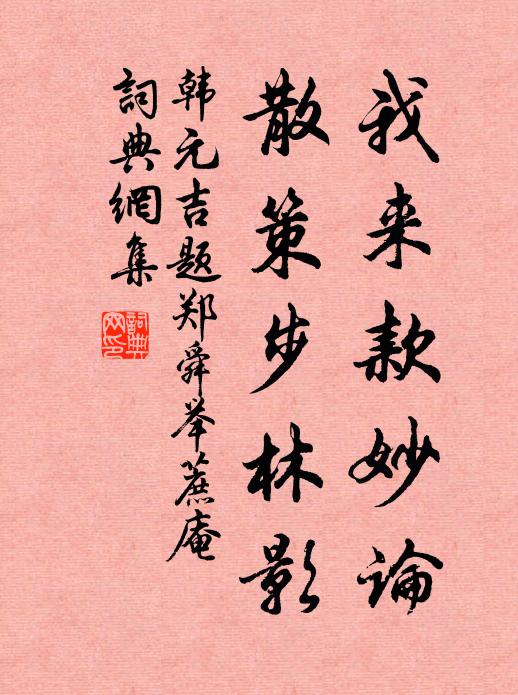 我来款妙論
散策步林影
韩元吉题郑舜举蔗庵
詞典網集
詞典
網印